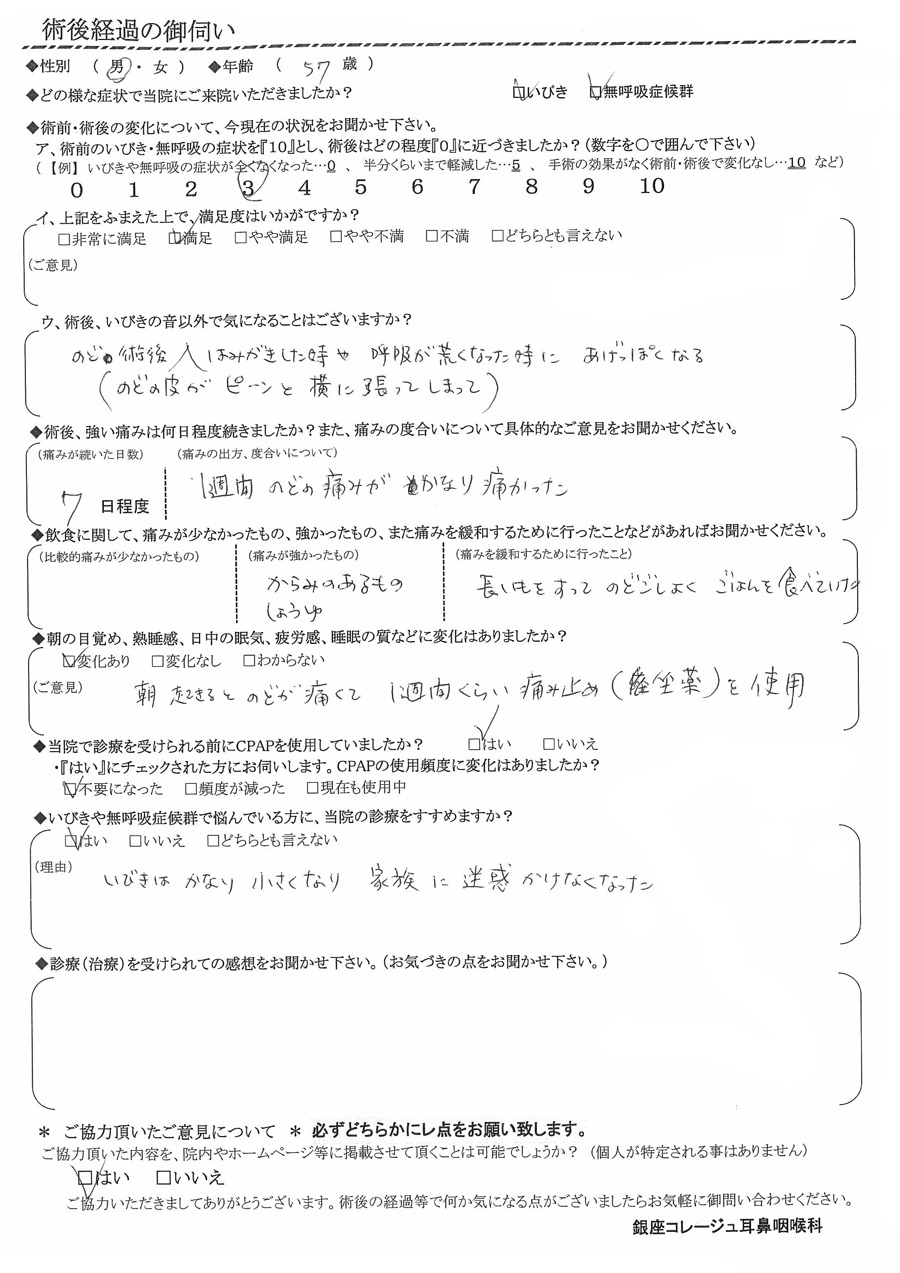 術後経過の御伺い
◆性別 （ 男 ・ 女 ） ◆年齢 （ 57 歳 ）
◆どの様な症状で当院にご来院いただきましたか？ ☑いびき ☑無呼吸症候群
◆術前・術後の変化について、今現在の状況をお聞かせ下さい。
ア、術前のいびき・無呼吸の症状を『10』とし、術後はどの程度『0』に近づきましたか？（数字を〇で囲んで下さい）
（【例】 いびきや無呼吸の症状が全くなくなった…0 、 半分くらいまで軽減した…5 、 手術の効果がなく術前・術後で変化なし…10 など）
0 1 2 3 4 5 6 7 8 9 10
イ、上記をふまえた上で、満足度はいかがですか？
□非常に満足 ☑満足 □やや満足 □やや不満 □不満 □どちらとも言えない
(ご意見)
ウ、術後、いびきの音以外で気になることはございますか？
のど 術後 はみがきした時や 呼吸が荒くなった時に あげっぽくなる
(のどの皮が ピーンと 横に張ってしまって)
◆術後、強い痛みは何日程度続きましたか？また、痛みの度合いについて具体的なご意見をお聞かせください。
(痛みが続いた日数) (痛みの出方、度合いについて)
7 日程度 1週間 のどの痛みが かなり 痛かった
◆飲食に関して、痛みが少なかったもの、強かったもの、また痛みを緩和するために行ったことなどがあればお聞かせください。
(比較的痛みが少なかったもの) (痛みが強かったもの) (痛みを緩和するために行ったこと)
からみのあるもの 長いもをすって のどごしよく ごはんを食べていた
しょうゆ
◆朝の目覚め、熟睡感、日中の眠気、疲労感、睡眠の質などに変化はありましたか？
☑変化あり □変化なし □わからない
(ご意見) 朝 起きると のどが痛くて 1週間くらい 痛み止め(座薬)を使用
◆当院で診療を受けられる前にCPAPを使用していましたか？ ☑はい □いいえ
・『はい』にチェックされた方にお伺いします。CPAPの使用頻度に変化はありましたか？
☑不要になった □頻度が減った □現在も使用中
◆いびきや無呼吸症候群で悩んでいる方に、当院の診療をすすめますか？
☑はい □いいえ □どちらとも言えない
(理由) いびきは かなり 小さくなり 家族に 迷惑かけなくなった
◆診療（治療）を受けられての感想をお聞かせ下さい。（お気づきの点をお聞かせ下さい。）
＊ ご協力頂いたご意見について ＊ 必ずどちらかにレ点をお願い致します。
ご協力頂いた内容を、院内やホームページ等に掲載させて頂くことは可能でしょうか？ （個人が特定される事はありません）
☑はい □いいえ
ご協力いただきましてありがとうございます。術後の経過等で何か気になる点がございましたらお気軽に御問い合わせください。
銀座コレージュ耳鼻咽喉科